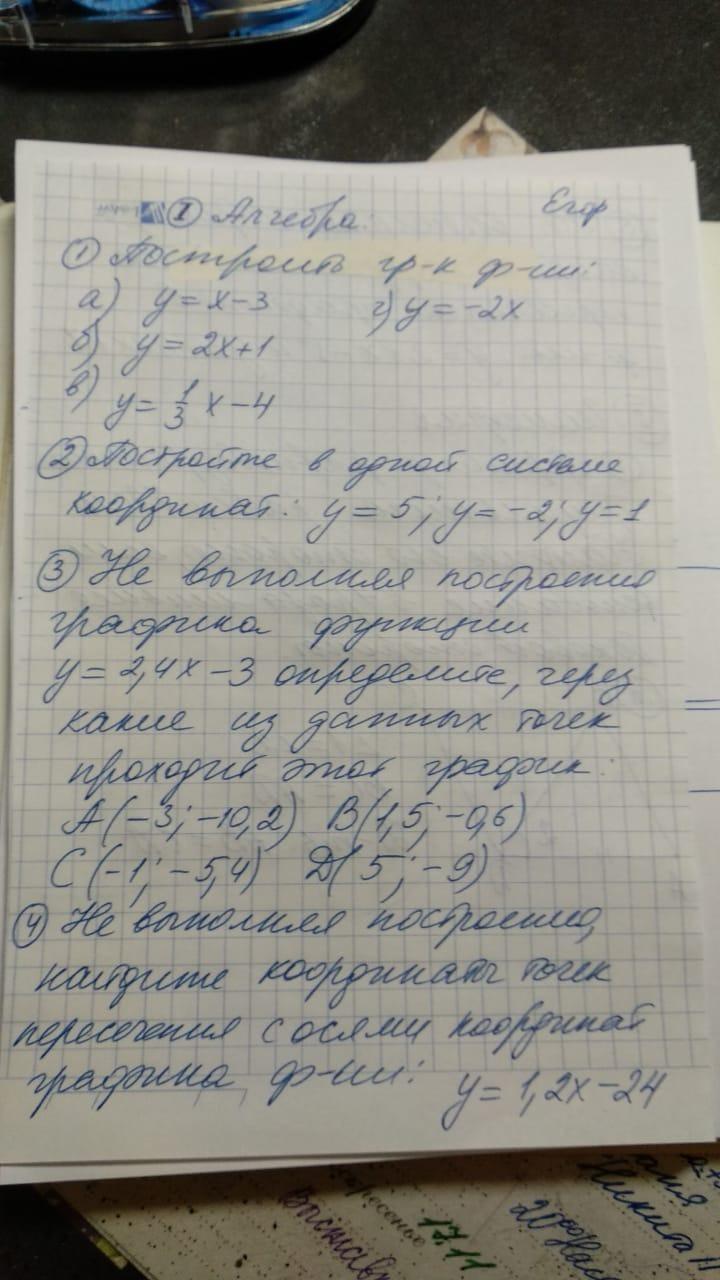 I Алгебра: Егор
1 Построить гр-к ф-ии:
а) y = x - 3 г) y = -2x
б) y = 2x+1
в) y = 1/3 x - 4
2 Постройте в одной системе
координат: y = 5; y = -2; y = 1
3 Не выполняя построения
графика функции
y = 2,4x - 3 определите, через
какие из данных точек
проходит этот график:
A(-3; -10,2) B(1,5; -0,6)
C(-1; -5,4) D(5; -9)
4 Не выполняя построения,
найдите координаты точек
пересечения с осями координат
графика ф-ии: y = 1,2x - 24
17.11
Никита